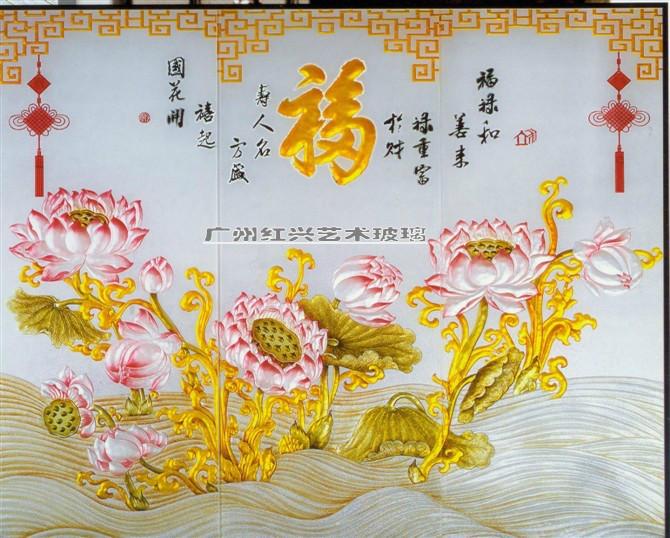 福禄和
善来
禄重富
於财
福
寿人名
方盛
國花開
禧起
广州红兴艺术玻璃